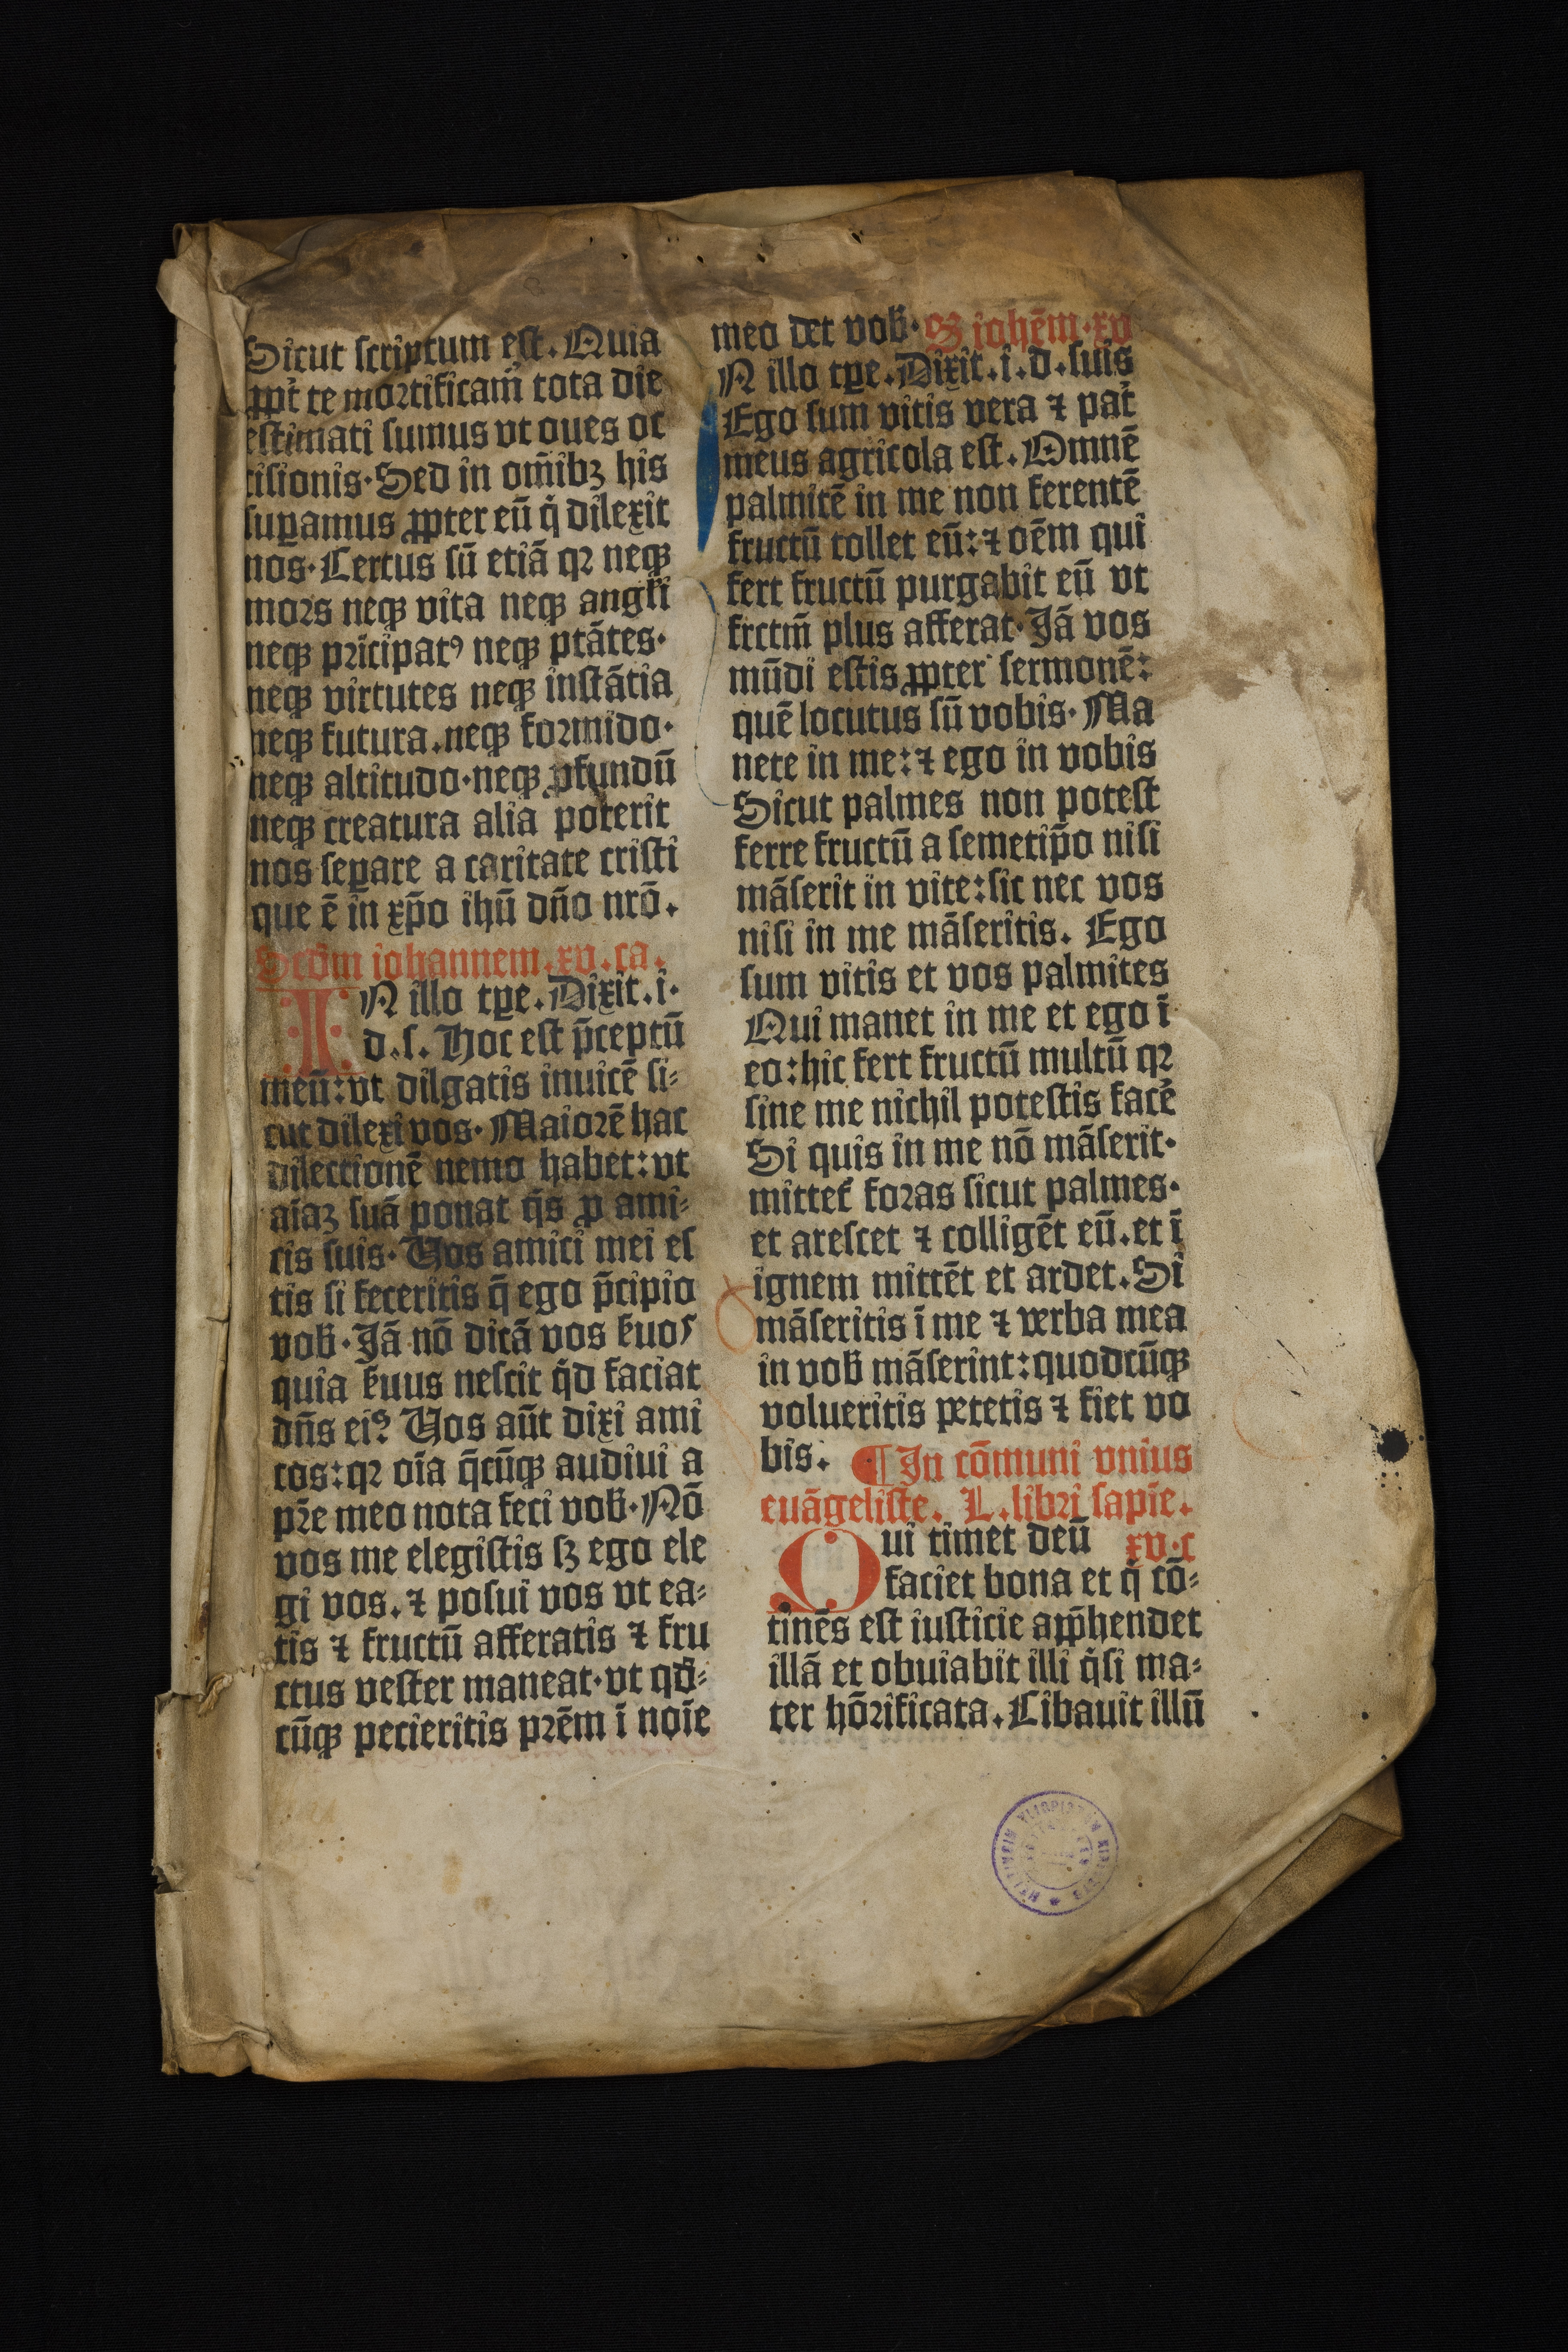 Sicut scriptum est. Quia
ꝓpt̄ te mortificam̄ tota die
estimati sumus vt oues oc
cisionis. Sed in om̄ibꝫ his
suꝑamus ꝓpter eū q̇ dilexit
nos. Certus sū etiā qꝛ neqꝫ
mors neqꝫ vita neqꝫ angl̄i
neqꝫ pri̇cipatꝰ neqꝫ ptātes.
neqꝫ virtutes neqꝫ instātia
neqꝫ futura. neqꝫ formido.
neqꝫ altitudo. neqꝫ ꝓfundū
neqꝫ creatura alia poterit
nos seꝑare a caritate cristi
que ē in xp̄o ihū dn̄o nrō.
Scdm̄ iohannem. xv. ca.
IN illo tꝑe. Dixit. i.
d. s. Hoc est p̄ceptū
meū: vt dilgatis inuicē si-
cut dilexi vos. Maiorē hac
dilectionē nemo habet: vt
aīaꝫ suā ponat q̇s ꝓ ami-
cis suis. Uos amici mei es
tis si feceritis q̄ ego p̄cipio
vob̄. Jā nō dicā vos s̄uos
quia s̄uus nescit q̇d faciat
dn̄s eiꝰ Uos aūt dixi ami
cos: qꝛ oīa q̄cūqꝫ audiui a
pr̄e meo nota feci vob̄. Nō
vos me elegistis sꝫ ego ele
gi vos. ⁊ posui vos vt ea-
tis ⁊ fructū afferatis ⁊ fru
ctus vester maneat. vt qd̄-
cūqꝫ pecieritis prēm ī noīe
meo det vob̄. S iohēm. xv
N illo tꝑe. Dixit. i. d. suis
Ego sum vitis vera ⁊ pat̄
meus agricola est. Omnē
palmitē in me non ferentē
fructū tollet eū: ⁊ oēm qui
fert fructū purgabit eū vt
frctm̄ plus afferat. Jā vos
mūdi estis ꝓpter sermonē:
quē locutus sū vobis. Ma
nete in me: ⁊ ego in vobis
Sicut palmes non potest
ferre fructū a semetip̄o nisi
māserit in vite: sic nec vos
nisi in me māseritis. Ego
sum vitis et vos palmites
Qui manet in me et ego ī
eo: hic fert fructū multū qꝛ
sine me nichil potestis facē
Si quis in me nō māserit.
mittet᷑ foras sicut palmes.
et arescet ⁊ colligēt eū. et ī
ignem mittēt et ardet. Si
māseritis ī me ⁊ verba mea
in vob̄ māserint: quodcūqꝫ
volueritis petetis ⁊ fiet vo
bis. ¶ In cōmuni vnius
euāgeliste. L. libri sapīe.
Qui timet deū xv. c
faciet bona et q̇ cō-
tinēs est iusticie app̄hendet
illā et obuiabit illi q̇si ma-
ter hōrificata. Cibauit illū